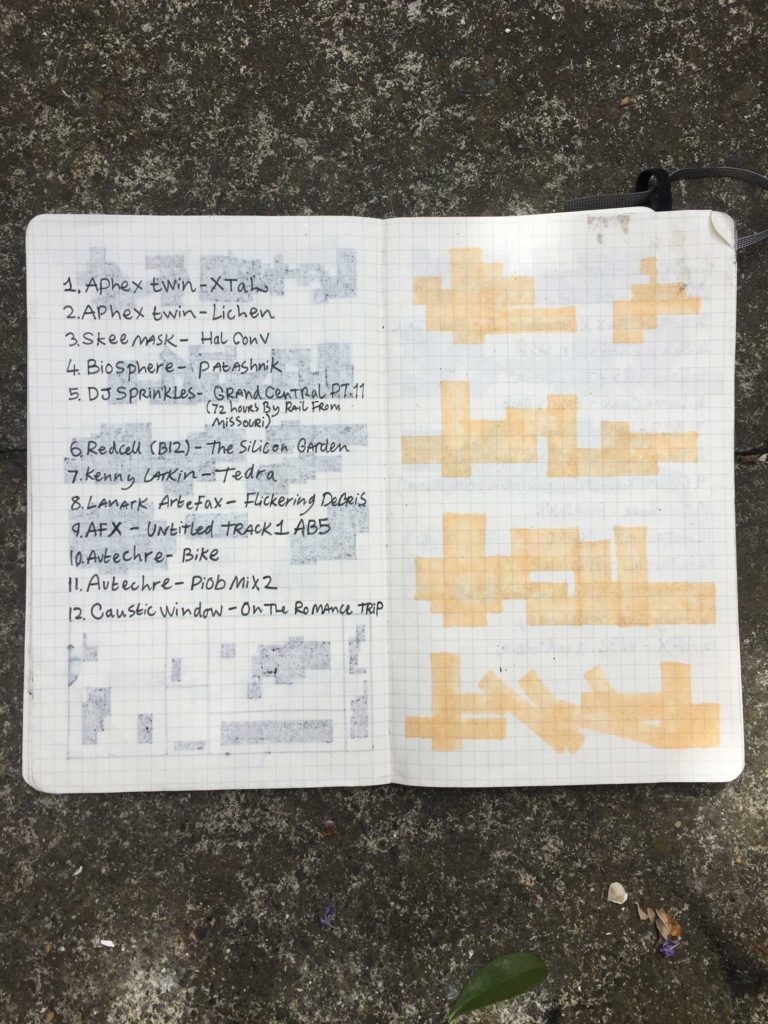 1. Aphex twin - XTaL
2. Aphex twin - Lichen
3. Skee MASK - Hal Conv
4. Biosphere - Patashnik
5. DJ Sprinkles - GRand CentRal PT.11
(72 hours By Rail From
Missouri)
6. Redcell (B12) - The Silicon Garden
7. Kenny Larkin - Tedra
8. Lanark Artefax - Flickering Debris
9. AFX - Untitled TRACK 1 AB5
10. Autechre - Bike
11. Autechre - Piob Mix 2
12. Caustic Window - On The Romance Trip